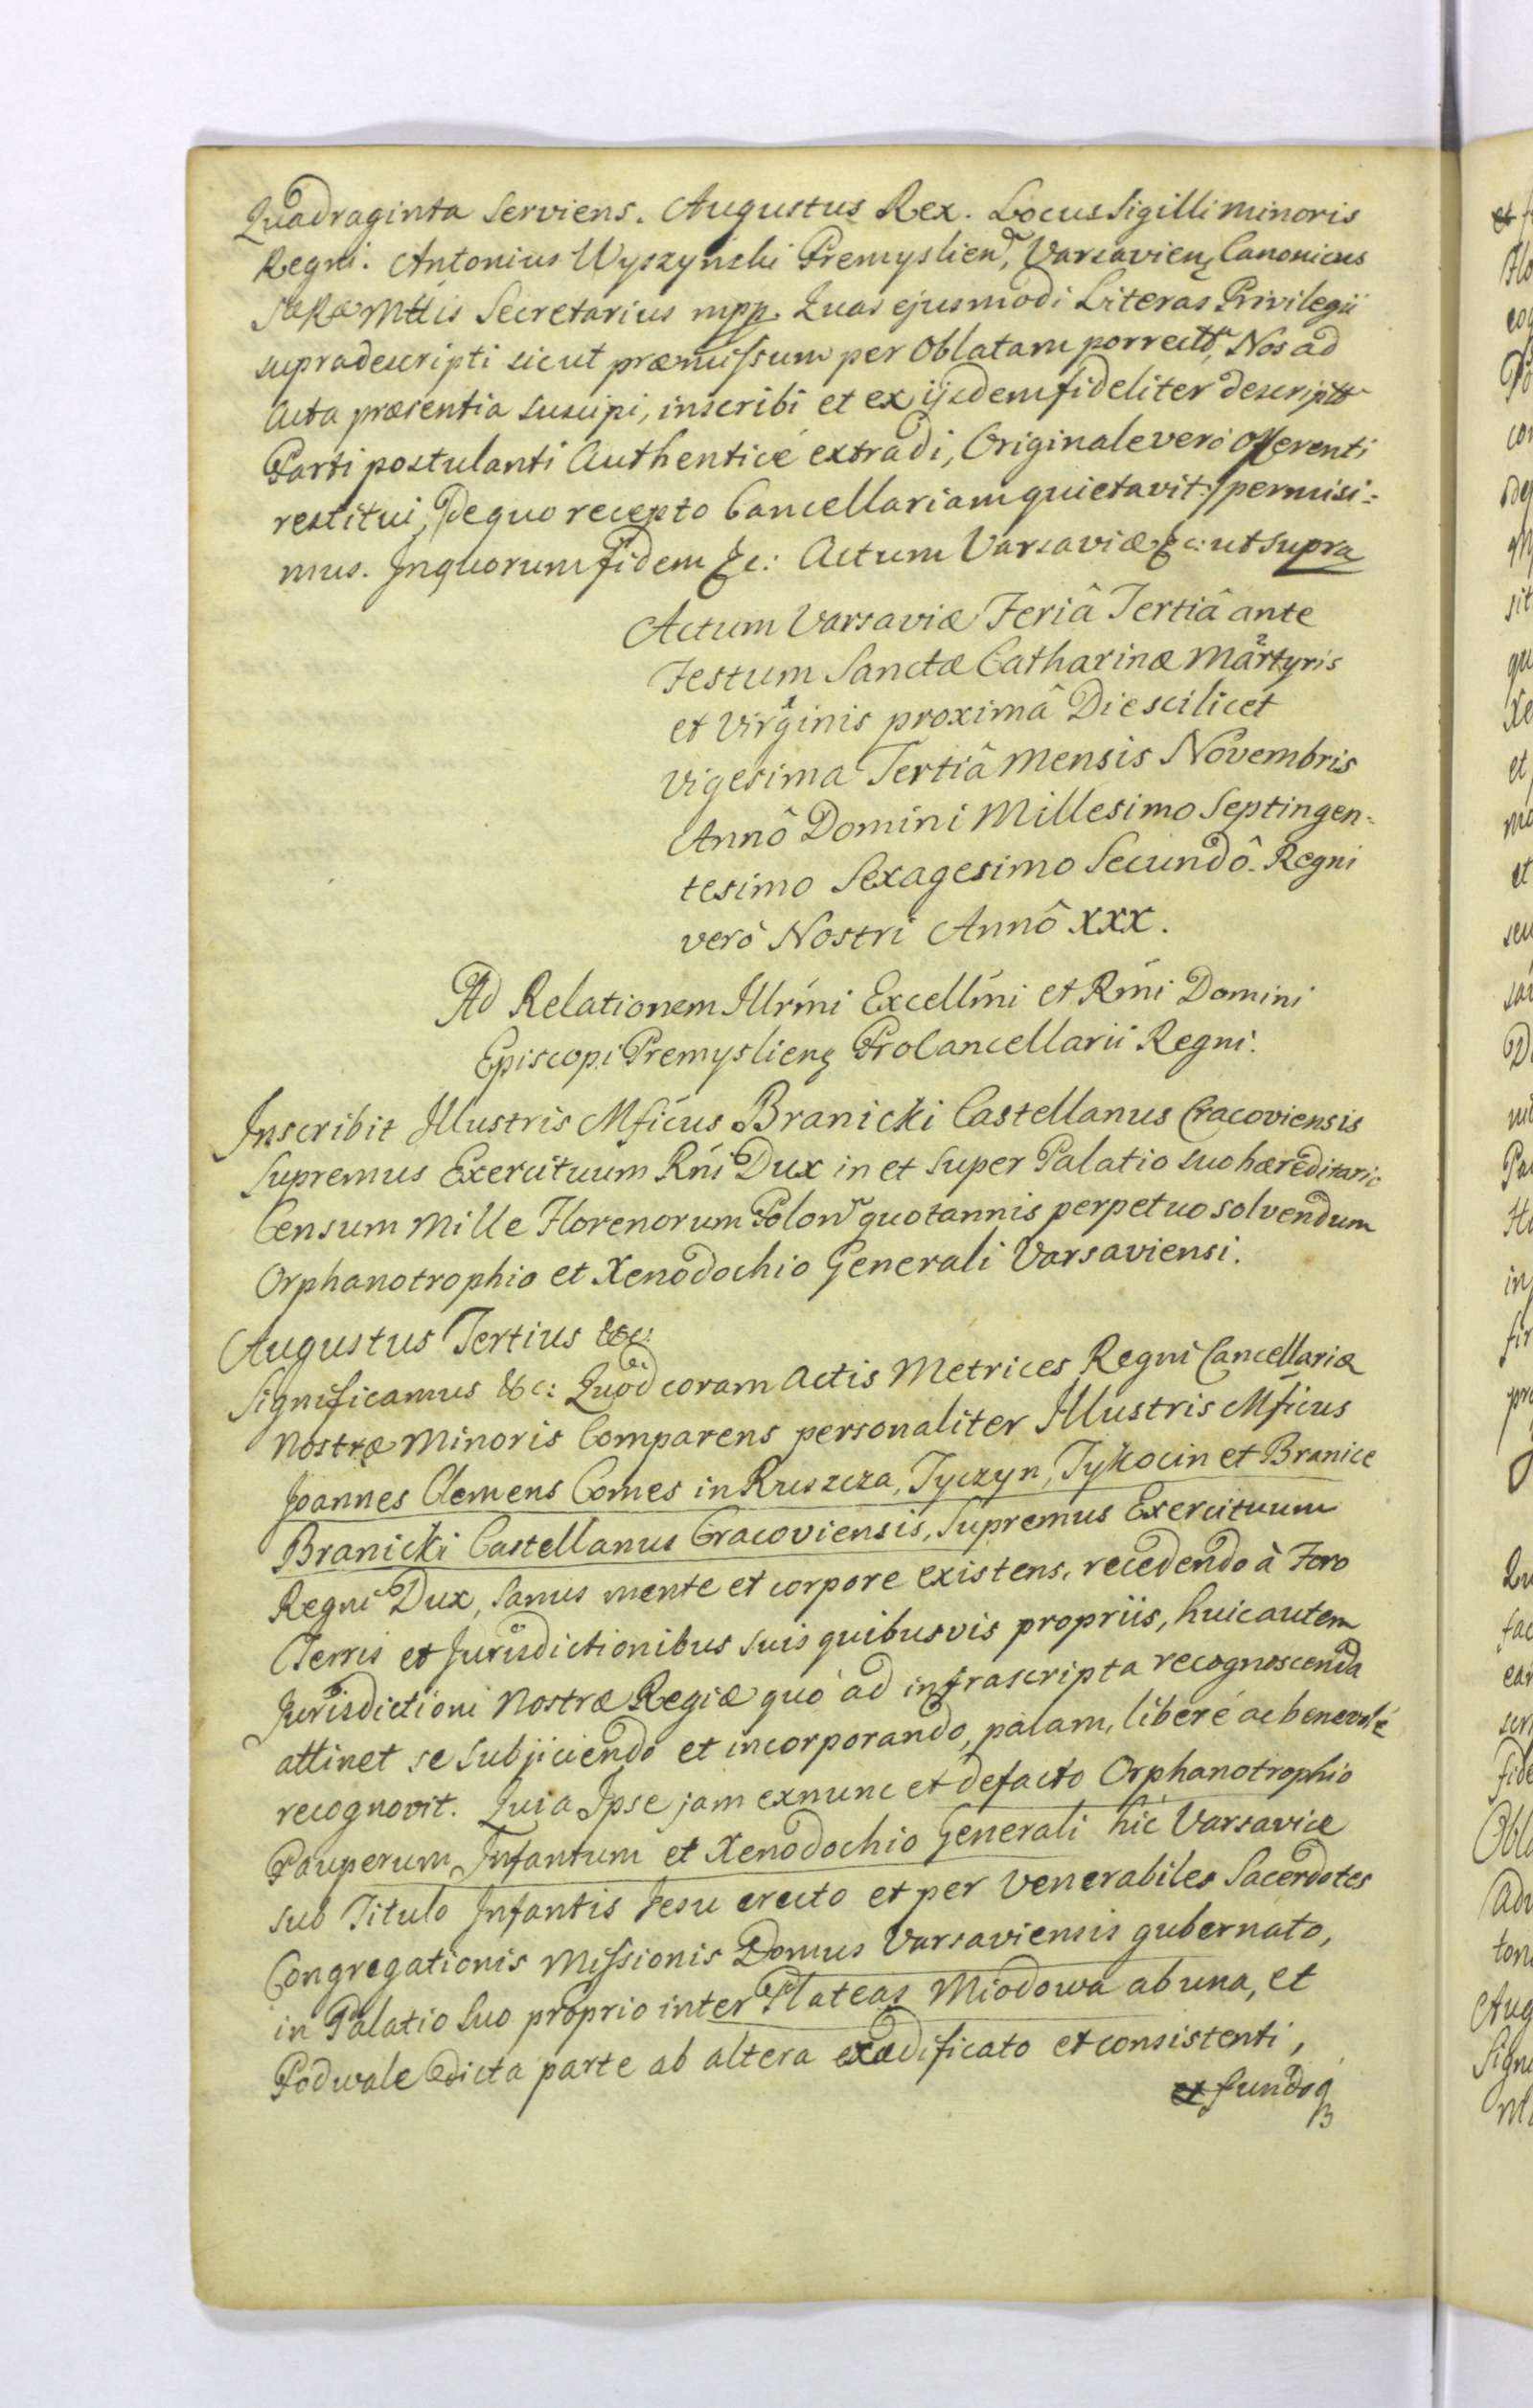 Quadraginta Serviens. Augustus Rex. Locus Sigilli Minoris
Regni. Antonius Wyszyński Premyslien, Varsavien Canonicus
SæRæMttis Secretarius mpp. Quas ejusmodi Literas Privilegii
supradescripti sicut præmissum per Oblatam porrectt, Nos ad
Acta præsentia suscipi, inscribi et ex ijsdem fideliter descriptt
Parti postulanti Authenticé extradi, Originale verò Offerenti
restitui, /:de quo recepto Cancellariam quietavit:/ permisi-
mus. In quorum fidem &c: Actum Varsaviæ &c: ut supra
Actum Varsaviæ Feriâ Tertiâ ante
Festum Sanctæ Catharinæ Martyris
et Virginis proximâ Die scilicet
Vigesima Tertiâ Mensis Novembris
Annô Domini Millesimo Septingen-
tesimo Sexagesimo Secundô. Regni
verò Nostri Annô XXX.
Ad Relationem Illrmi Excellmi et Rmi Domini
Episcopi Premyslien Procancellarii Regni.
Inscribit Illustris Mficus Branicki Castellanus Cracoviensis
Supremus Exercituum Rni Dux in et super Palatio suo hæreditario
Censum Mille Florenorum Polon quotannis perpetuo solvendum
Orphanotrophio et Xenodochio Generali Varsaviensi.
Augustus Tertius &c:
Significamus &c: Quod coram Actis Metrices Regni Cancellariæ
Nostræ Minoris Comparens personaliter Illustris Mficus
Joannes Clemens Comes in Ruszcza, Tyczyn, Tykocin et Branice
Branicki Castellanus Cracoviensis, Supremus Exercituum
Regni Dux, Sanus mente et corpore existens, recedendo à Foro
Terris et Jurisdictionibus suis quibusvis propriis, huic autem
Jurisdictioni Nostræ Regiæ quò ad infrascripta recognoscenda
attinet se subjiciendo et incorporando, palam, liberé ac benevolé
recognovit. Quia Ipse jam exnunc et defacto Orphanotrophio
Pauperum Infantum et Xenodochio Generali hîc Varsaviæ
sub Titulo Infantis Jesu erecto et per Venerabiles Sacerdotes
Congregationis Missionis Domus Varsaviensis gubernato,
in Palatio Suo proprio inter Plateas Miodowa ab una, et
Podwale dicta parte ab altera exædificato et consistenti,
et fundoq